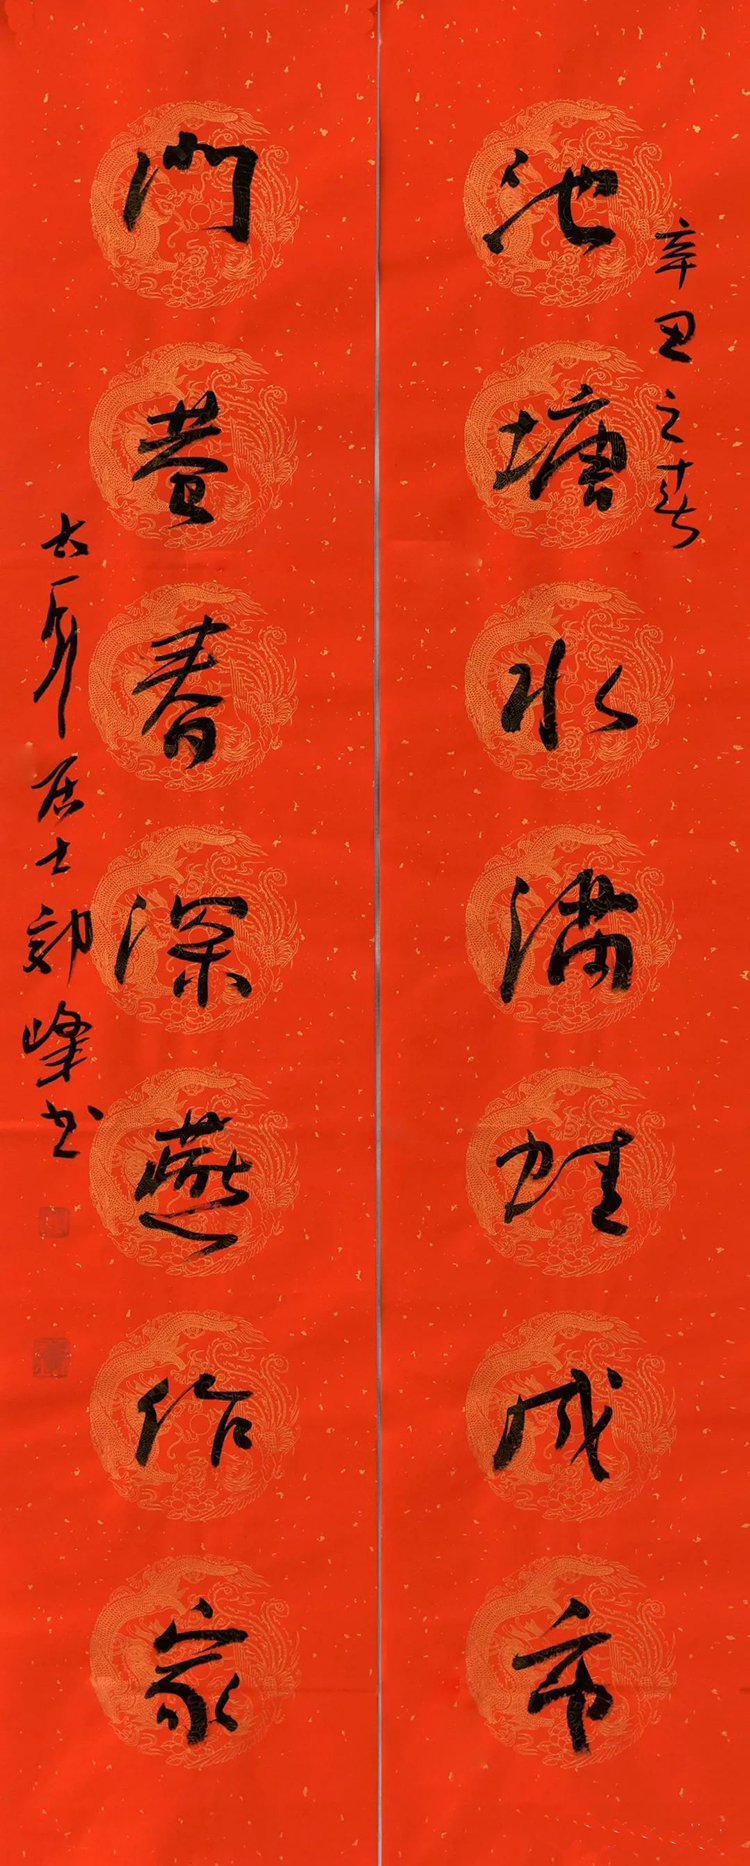 辛丑之春
池塘水滿蛙成市
門巷春深燕作家
居士 峰书